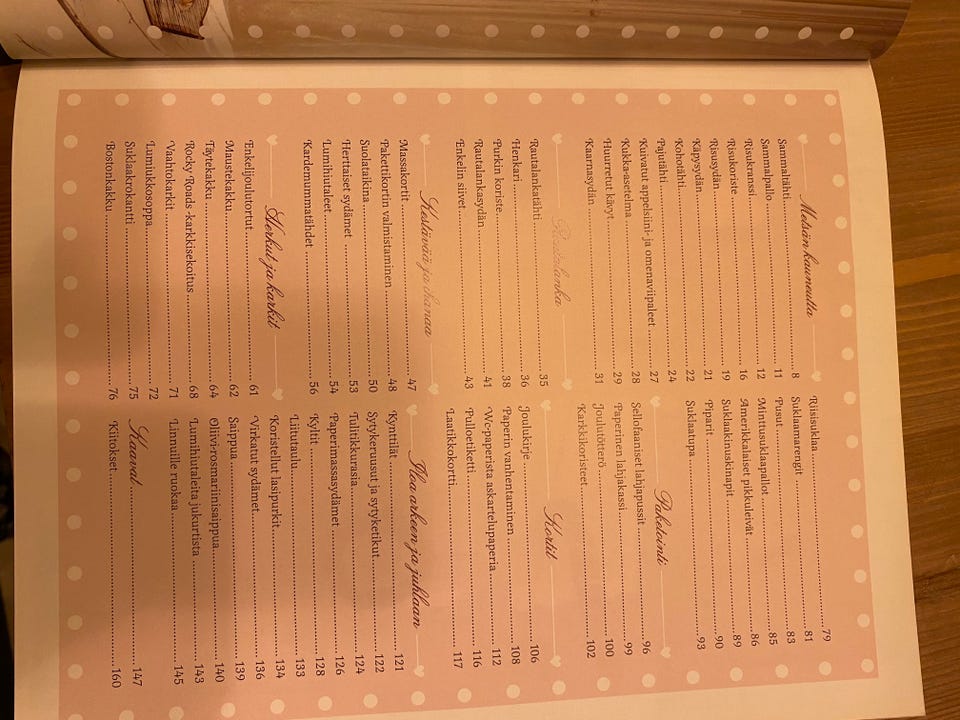 Metsän kauneutta
Sammaltähti 8
Sammalpallo 11
Risukranssi 12
Risukoriste 16
Risusydän 19
Käpysydän 21
Kohotähti 22
Pajutähti 24
Kuivatut appelsiini- ja omenaviipaleet 27
Kukka-asetelma 28
Huurretut kävyt 29
Kaarnasydän 31
Rautalanka
Rautalankatähti 35
Henkari 36
Purkin koriste 38
Rautalankasydän 41
Enkelin siivet 43
Kestävää ja ihanaa
Massakortit 47
Pakettikortin valmistaminen 48
Suolataikina 50
Herttaiset sydämet 53
Lumihiutaleet 54
Kardemummatähdet 56
Herkut ja karkit
Enkelijoulutortut 61
Maustekakku 62
Täytekakku 64
Rocky Roads -karkkisekoitus 68
Vaahtokarkit 71
Lumiukkosoppa 72
Suklaakrokantti 75
Bostonkakku 76
Riisisuklaa 79
Suklaamarengit 81
Pusut 83
Minttusuklaapallot 85
Amerikkalaiset pikkuleivät 86
Suklaakinuskinapit 89
Piparit 90
Suklaatupa 93
Paketointi
Sellofaaniset lahjapussit 96
Paperinen lahjakassi 99
Joulutötterö 100
Karkkikoristeet 102
Kortit
Joulukirje 106
Paperin vanhentaminen 108
Wc-paperista askartelupaperia 112
Pulloetiketti 116
Laatikkokortti 117
Iloa arkeen ja juhlaan
Kynttilät 121
Sytykeruusut ja sytyketikut 122
Tulitikkurasia 124
Paperimassasydämet 126
Kyltit 128
Liitutaulu 133
Koristellut lasipurkit 134
Virkatut sydämet 136
Saippua 139
Oliivi-rosmariinisaippua 140
Lumihiutaleita jukurtista 143
Linnuille ruokaa 145
Kaavat 147
Kiitokset 160